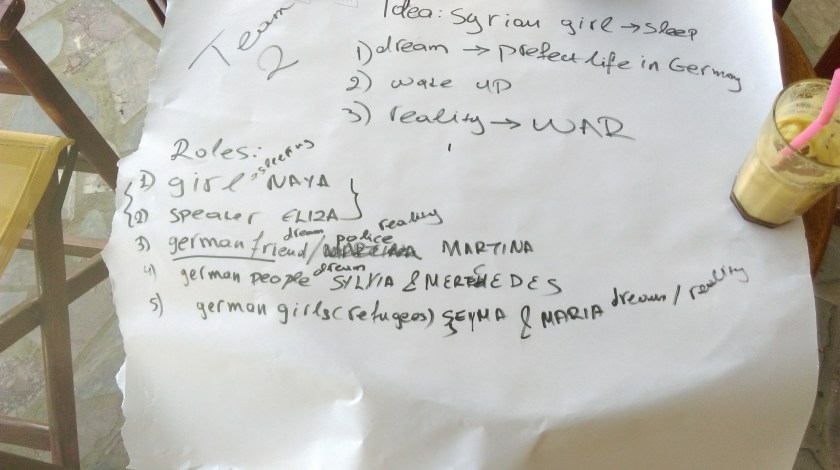 Team 2
Idea: Syrian girl → sleep
1) dream → prefect life in Germany
2) wake up
3) reality → WAR
Roles:
1) girl → sleeping NAYA
2) speaker ELIZA
3) german friend dream / police reality MARTINA
4) german people dream SYLVIA & MERCHEDES
5) german girls (refugees) ŞEYMA & MARIA dream / reality